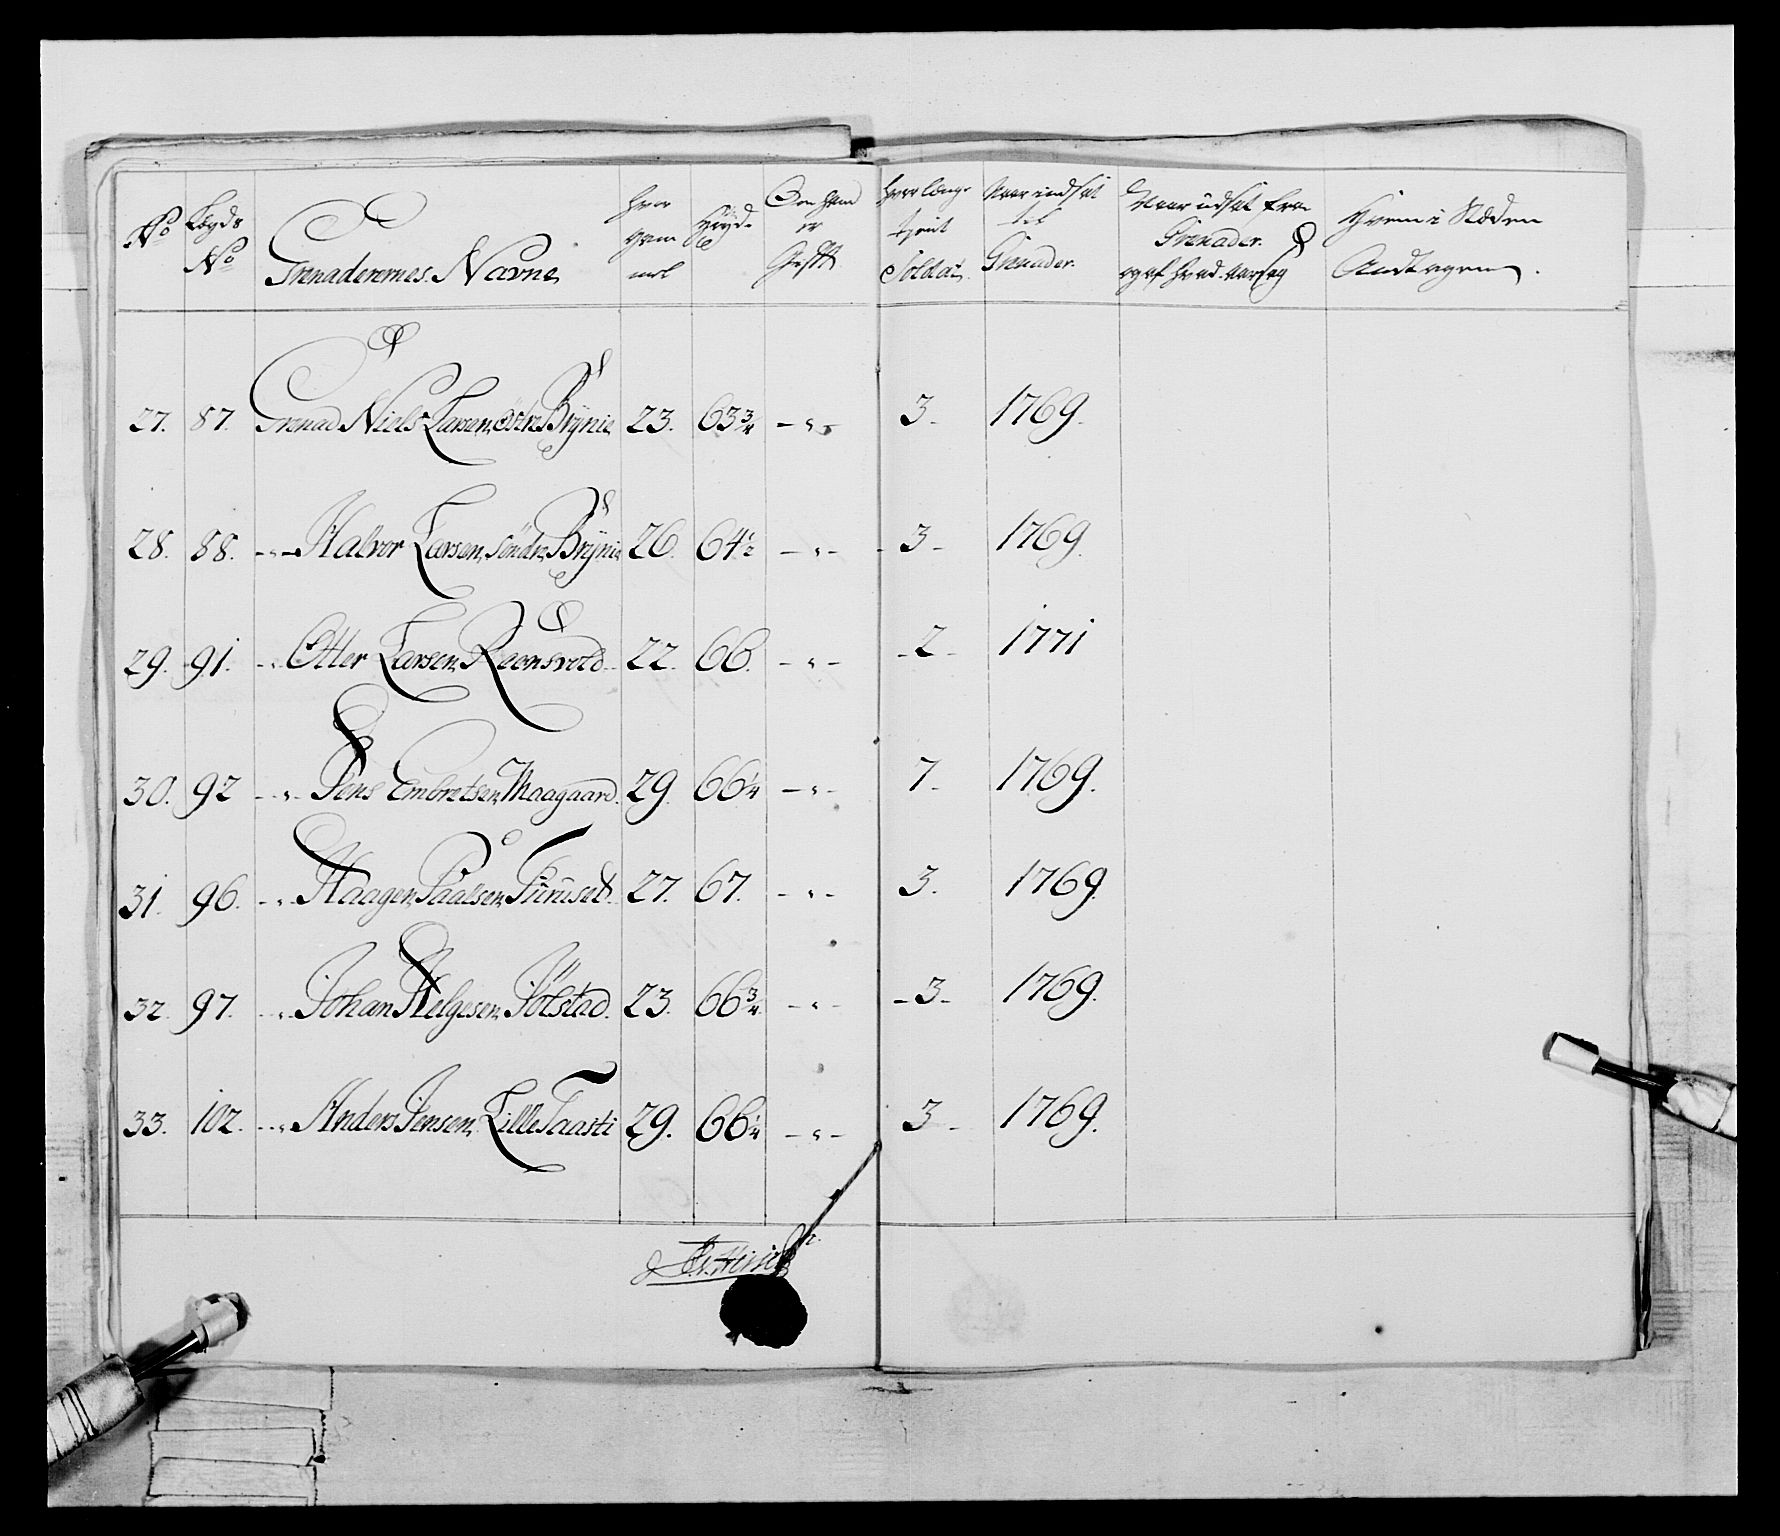 No | Lægds No | Grenaderernes Navne | hvor gam mel | Høyde | Om hand er Gift | hvor længe tient Soldat | Naar indsat til Grenader. | Naar udsat fra Grenader. og af hvad Aarsag | Hvem i Stæden Andtagen.
27. | 87. | Grenad Niels Larsen, østre Brÿnie | 23. | 63 3/4 | - " - | 3. | 1769.
28. | 88. | - " - Halvor Larsen, söndre Brÿnie | 26. | 64 1/2 | - " - | - 3 - | 1769.
29. | 91. | - " Otter Larsen, Roensvold | 22. | 66. | - " - | - 2 - | 1771
30. | 92 | - " - Jens Embretsen, Maagaard. | 29. | 66 1/4 | - " - | 7. | 1769.
31. | 96. | - " - Haagen, Paalsen, Furuset. | 27. | 67. | - " - | 3. | 1769.
32. | 97. | - " - Johan Helgesen, Jölstad. | 23. | 66 3/4 | - " - | - 3 - | 1769.
33. | 102. | - " - Anders Jensen, Lille Taasti | 29. | 66 1/4 | - " - | 3 - | 1769.